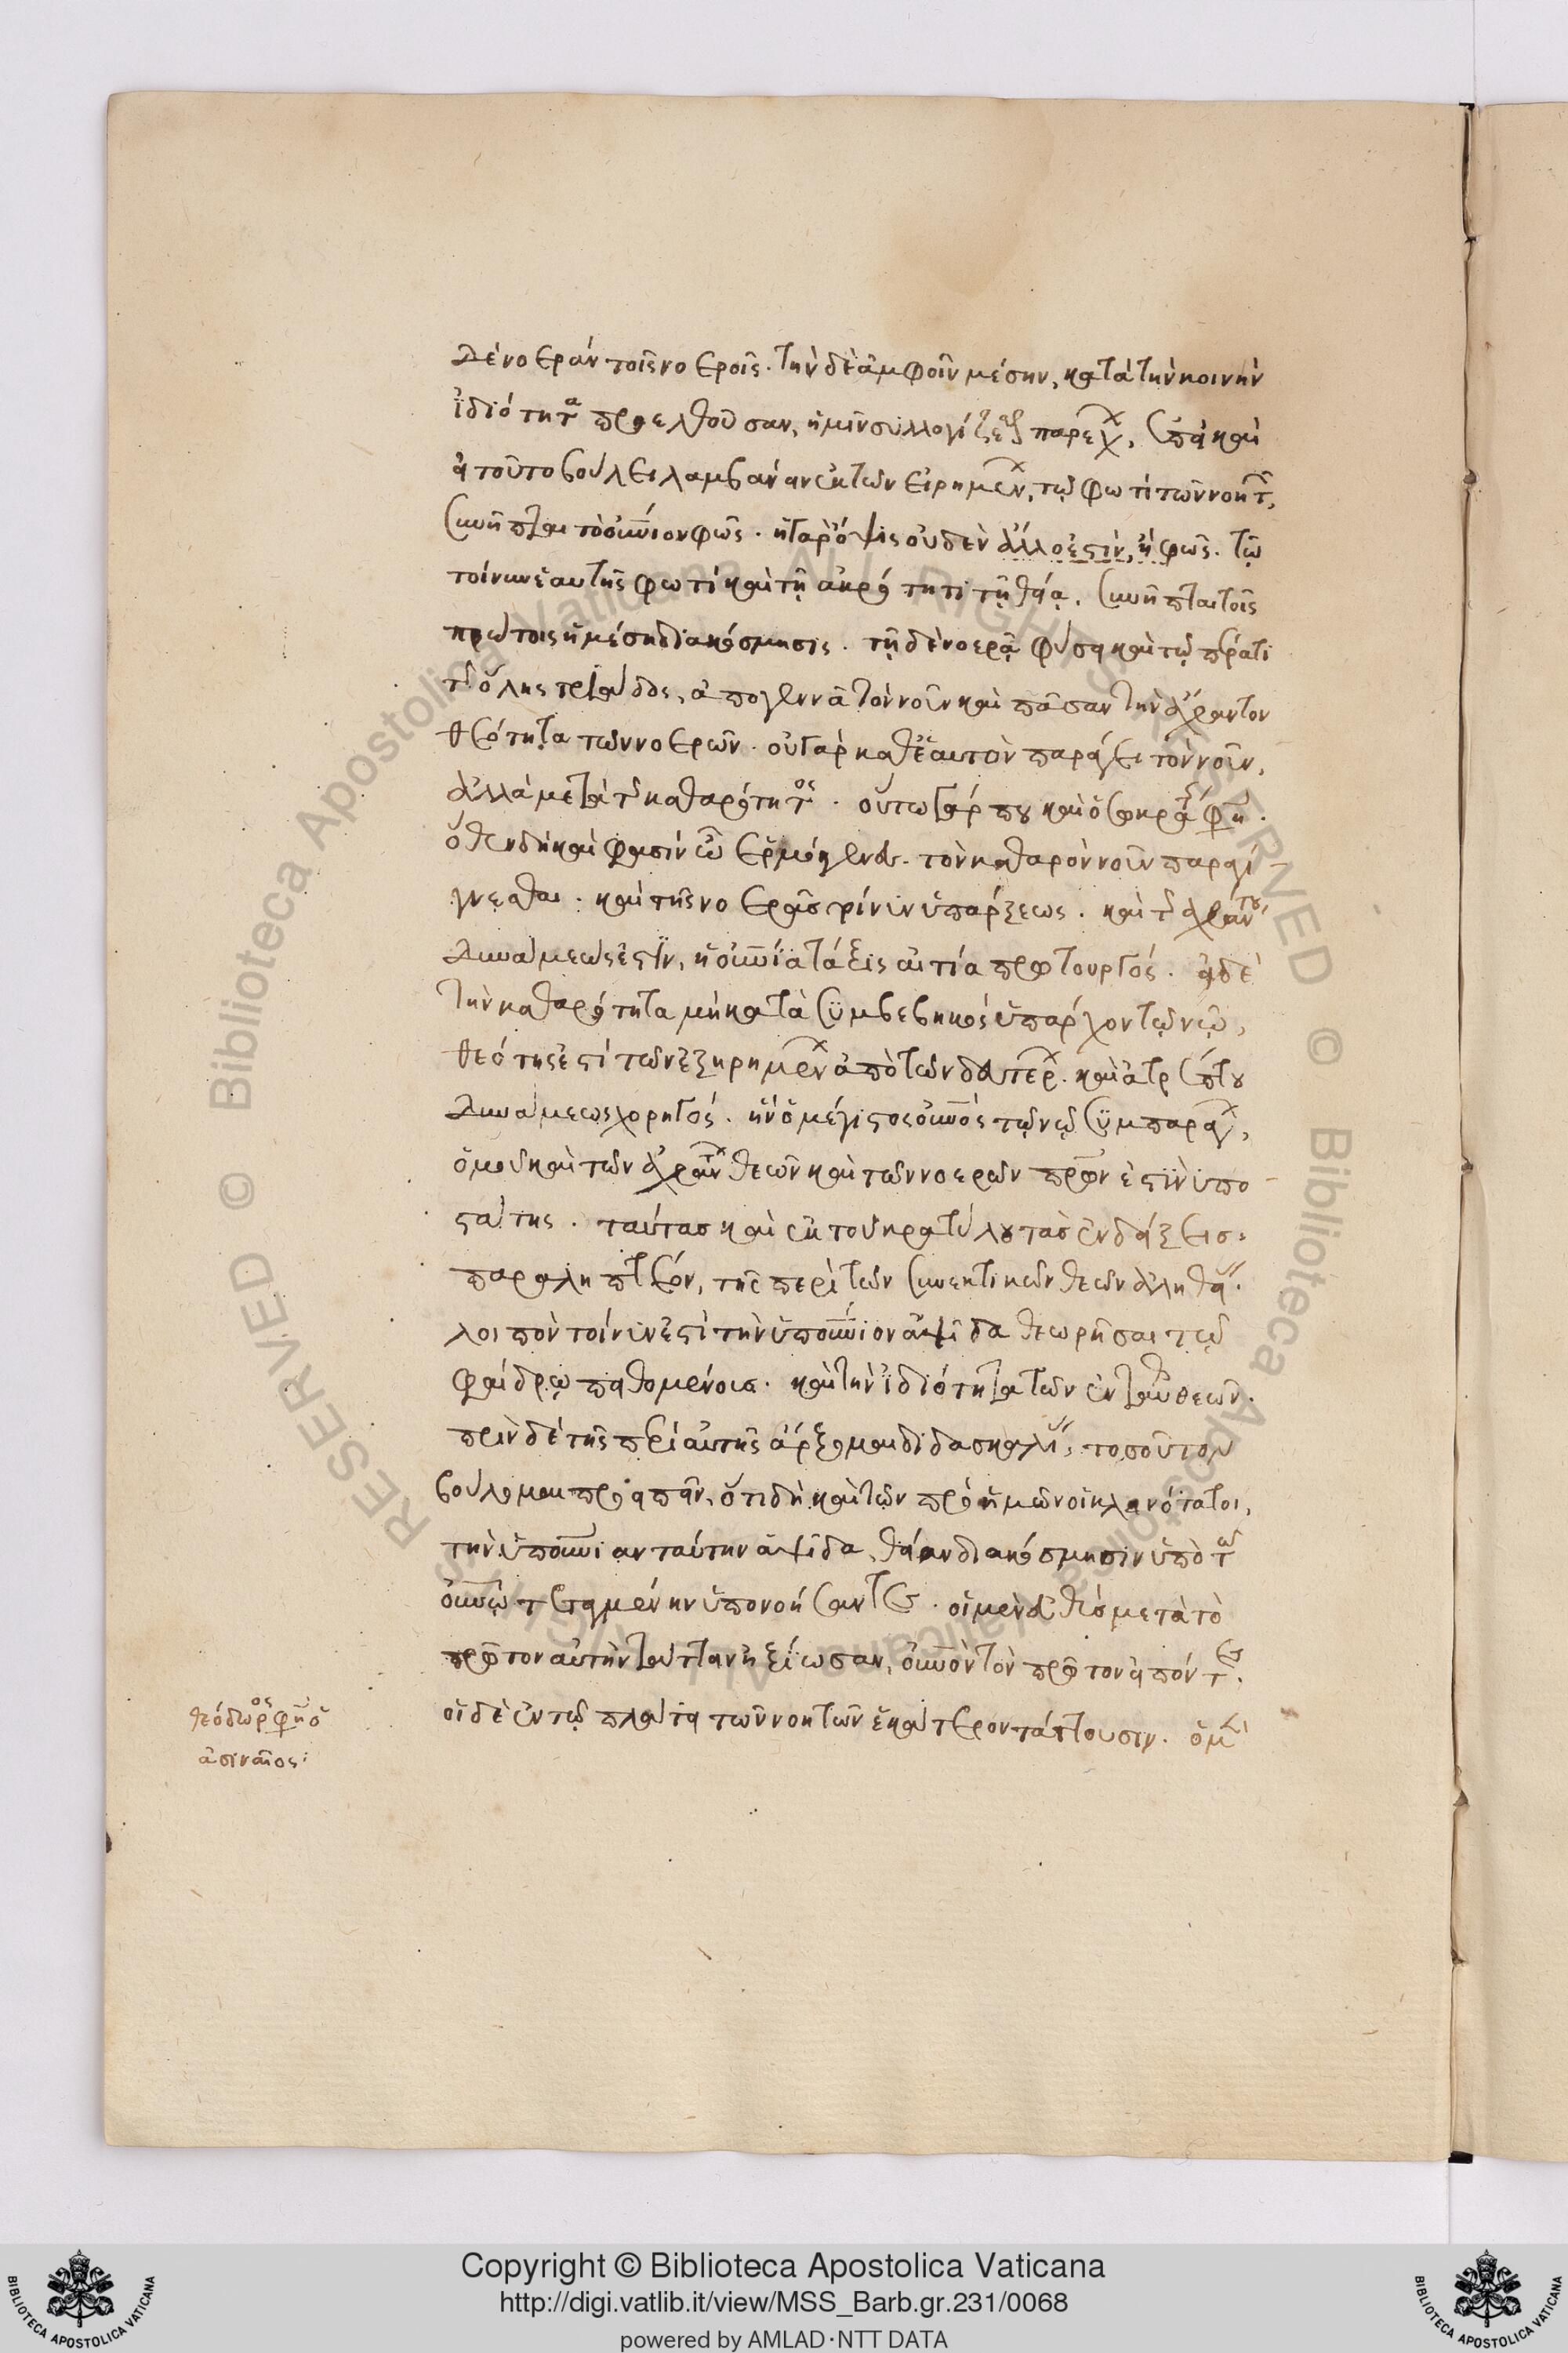 δὲ νοερὰν τοῖς νοεροῖς. τὴν δὲ ἀμφοῖν μέσην, κατὰ τὴν κοινὴν
ἰδιότητα προελθοῦσαν, ἡμῖν συλλογίζεσθαι παρέχει, ἐπεὶ καὶ
εἰ τοῦτο βούλει λαμβάνειν ἐκ τῶν εἰρημένων, τῷ φωτὶ τῶν νοητῶν,
συνῆπται τὸ οὐνιον φῶς. ἡ γὰρ ὄψις οὐδὲν ἄλλο ἐστὶν, ἢ φῶς. τῷ
τοίνυν ἑαυτῆς φωτὶ καὶ τῇ ἀκρότητι τῇ θεία, συνῆπται τοῖς
πρώτοις ἡ μέση διακόσμησις. τῇ δὲ νοερᾷ φύσει καὶ τῷ πέρατι
τῆς ὅλης τριάδος, ἀπογεννᾷ τὸν νοῦν καὶ πᾶσαν τὴν ἄχραντον
θεότητα τῶν νοερῶν. οὐ γὰρ καθ' ἑαυτὸν παράγει τὸν νοῦν,
ἀλλὰ μετὰ τῆς καθαρότητος. οὕτω γάρ που καὶ ὁ Σωκράτης φησί.
ὅθεν δὴ καὶ φασὶν ὦ Ἑρμόγενες. τὸν καθαρὸν νοῦν παραγί-
γνεσθαι. καὶ τῆς νοερᾶς τοίνυν ὑπάρξεως. καὶ τῆς ἀχράντου
δυνάμεώς ἐστιν, ἡ οὐνία τάξις αἰτία πρωτουργός. εἰ δὲ
τὴν καθαρότητα μὴ κατὰ συμβεβηκὸς ὑπάρχον τῷ νῷ,
θεότης ἐστὶ τῶν ἐξῃρημένων ἀπὸ τῶν δευτέρων. καὶ ἀτρέπτου
δυνάμεως χορηγός. ἣν ὁ μέγιστος οὐνὸς τῷ νῷ συμπαράγει,
ὁμοῦ καὶ τῶν ἀχράντων θεῶν καὶ τῶν νοερῶν πατέρων ἐστὶν ὑπο-
στάτης. ταύτας καὶ ἐκ τοῦ κρατύλου τὰς ἐνδείξεις
παραληπτέον, τῆς περὶ τῶν συνεκτικῶν θεῶν ἀληθείας.
λοιπὸν τοίνυν ἐστὶ τὴν ὑπουνιον ἁψῖδα θεωρῆσαι τῷ
φαίδρῳ πειθομένοις. καὶ τὴν ἰδιότητα τῶν ἐνταῦθα θεῶν.
πρὶν δὲ τῆς περὶ αὐτῆς ἄρξομαι διδασκαλίας, τοσοῦτον
βούλομαι προειπεῖν, ὅτι δὴ καὶ τῶν πρὸ ἡμῶν οἱ κλεινότατοι,
τὴν ὑπουνιαν ταύτην ἁψῖδα, θείαν διακόσμησιν ὑπὸ τὸν
οὐνῷ τεταγμένην ὑπονοήσαντες. οἱ μὲν εὐθὺς μετὰ τὸ
πρῶτον αὐτὴν τάττειν ἠξίωσαν, οὐνὸν τὸν πρῶτον εἰπόντες.
οἱ δὲ ἐν τῷ πλάτει τῶν νοητῶν ἑκάτερον τάττουσιν. ὁ μὲν
θεόδωρος φησὶν ὁ
ἀσιναῖος:
Copyright © Biblioteca Apostolica Vaticana
http://digi.vatlib.it/view/MSS_Barb.gr.231/0068
powered by AMLAD·NTT DATA